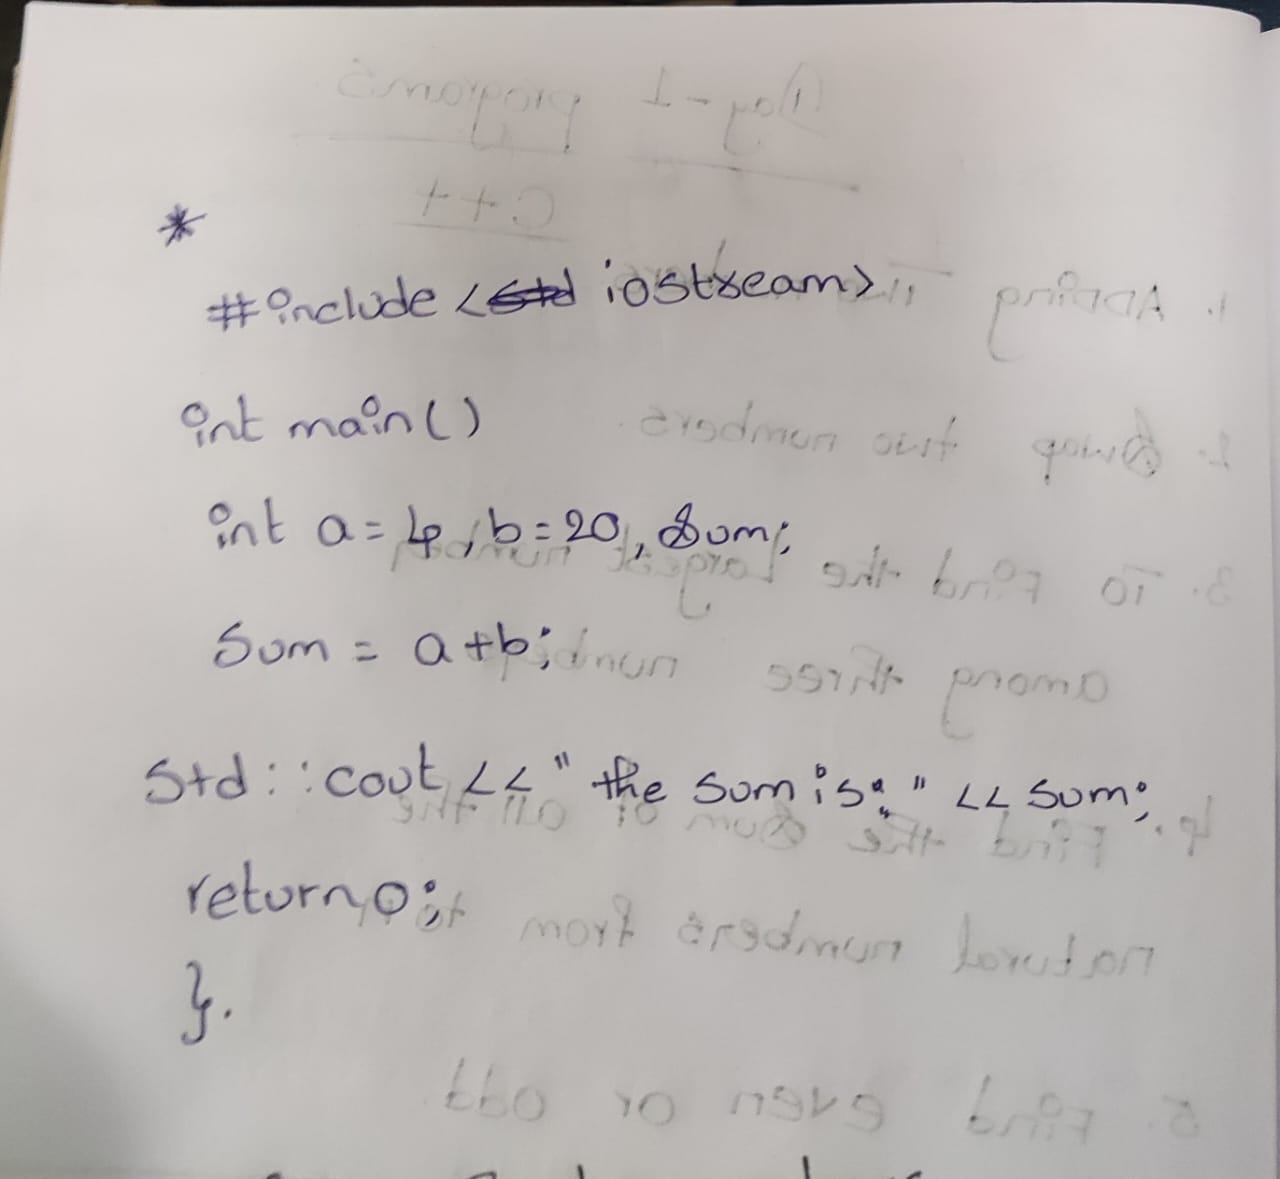 *
#include <iostream>
int main()
int a=4, b=20, sum;
Sum = a+b;
Std::cout<<" the sum is:" << sum;
return 0;
}.